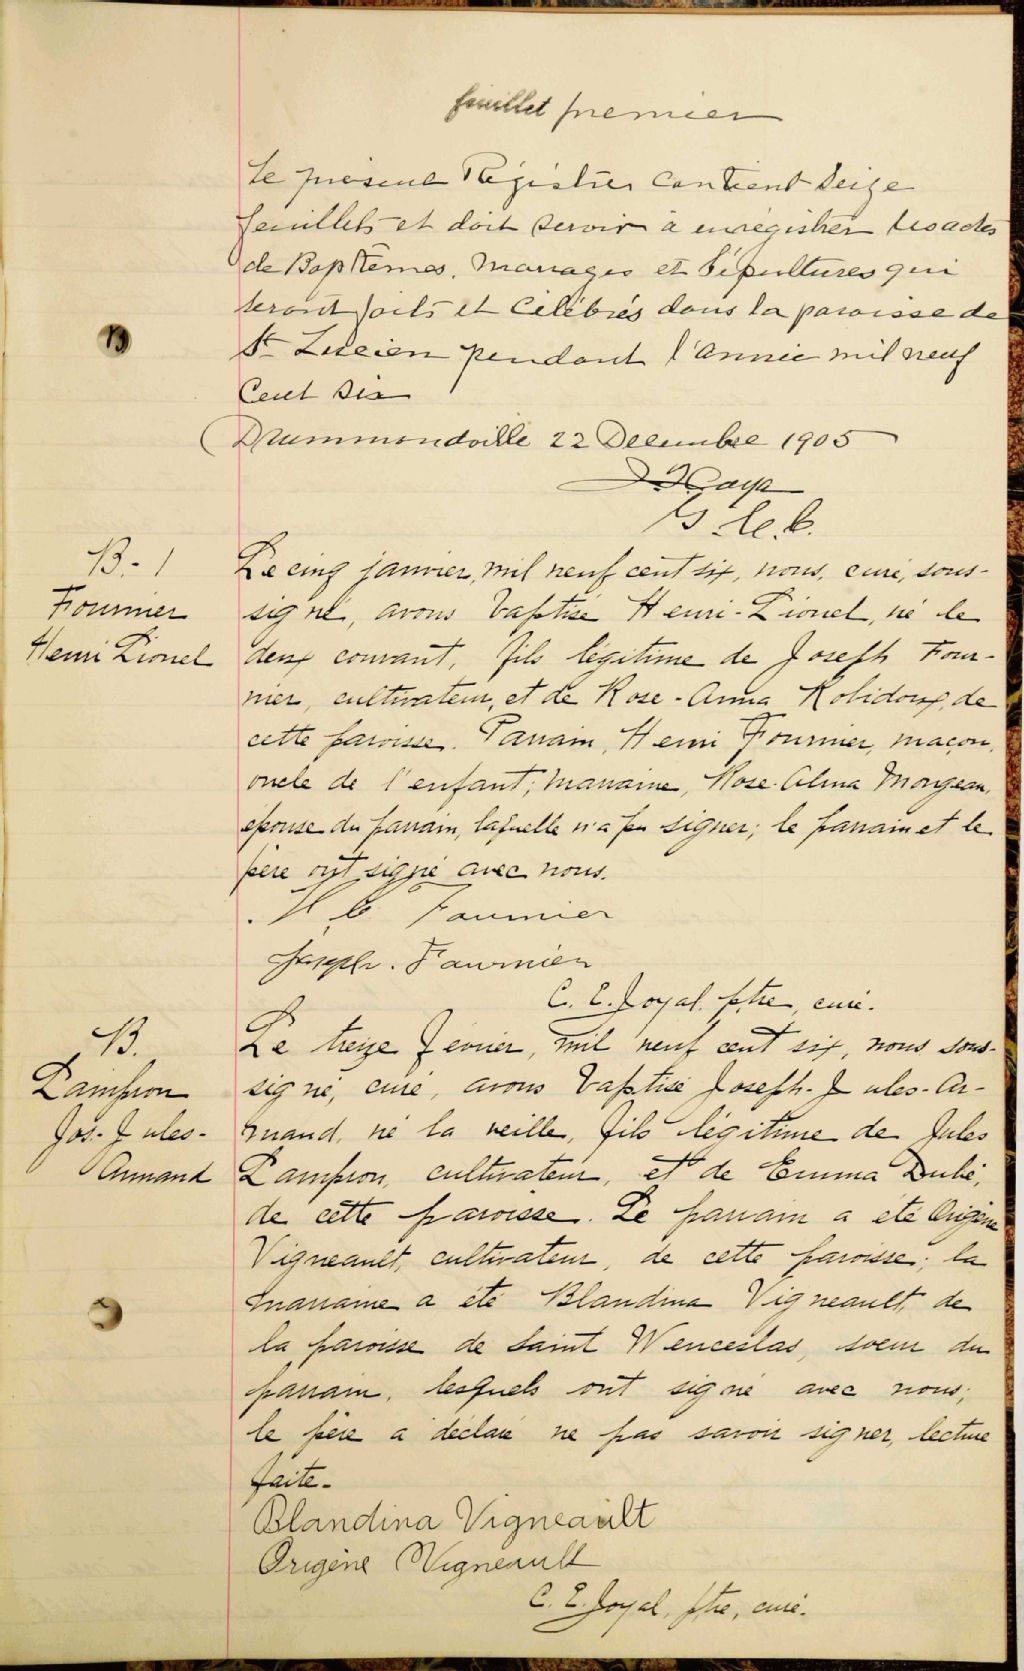 feuillet premier
Le présent Régistre contient seize
feuillets et doit servir à enrégistrer les actes
de Baptêmes, Mariages et Sépultures qui
seront faits et Célébrés dans la paroisse de
St Lucien pendant l'année mil neuf
Cent Six
Drummondville 22 Decembre 1905
B.-1
Fournier
Henri Lionel
Le cinq janvier, mil neuf cent six, nous, curé, sous-
signé, avons baptisé Henri-Lionel, né le
deux courant, fils légitime de Joseph Four-
nier, cultivateur, et de Rose-Anna Robidoux, de
cette paroisse. Parrain, Henri Fournier, maçon,
oncle de l'enfant; marraine, Rose-Alma Mongeau,
épouse du parrain, laquelle n'a pu signer; le parrain et le
père ont signé avec nous.
H. C. Fournier
Joseph. Fournier
C. E. Joyal, ptre, curé.
B.
Lampron
Jos-Jules-
Armand
Le treize février, mil neuf cent six, nous sous-
signé, curé, avons baptisé Joseph-Jules-Ar-
mand, né la veille, fils légitime de Jules
Lampron, cultivateur, et de Emma Dubé,
de cette paroisse. Le parrain a été Origène
Vigneault, cultivateur, de cette paroisse; la
marraine a été Blandina Vigneault, de
la paroisse de Saint Wenceslas, soeur du
parrain, lesquels ont signé avec nous;
le père a déclaré ne pas savoir signer, lecture
faite.
Blandina Vigneault
Origène Vigneault
C. E. Joyal, ptre, curé.